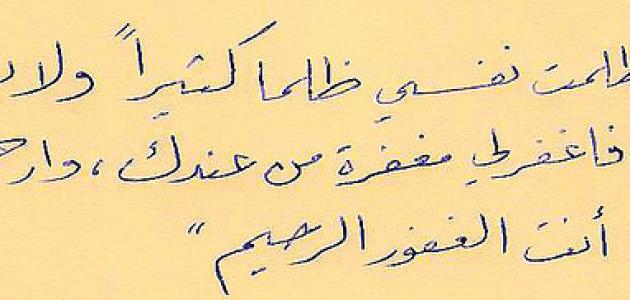 ظلمت نفسي ظلما كثيراً ولا
فاغفرلي مغفرة من عندك، وار
أنت الغفور الرحيم "